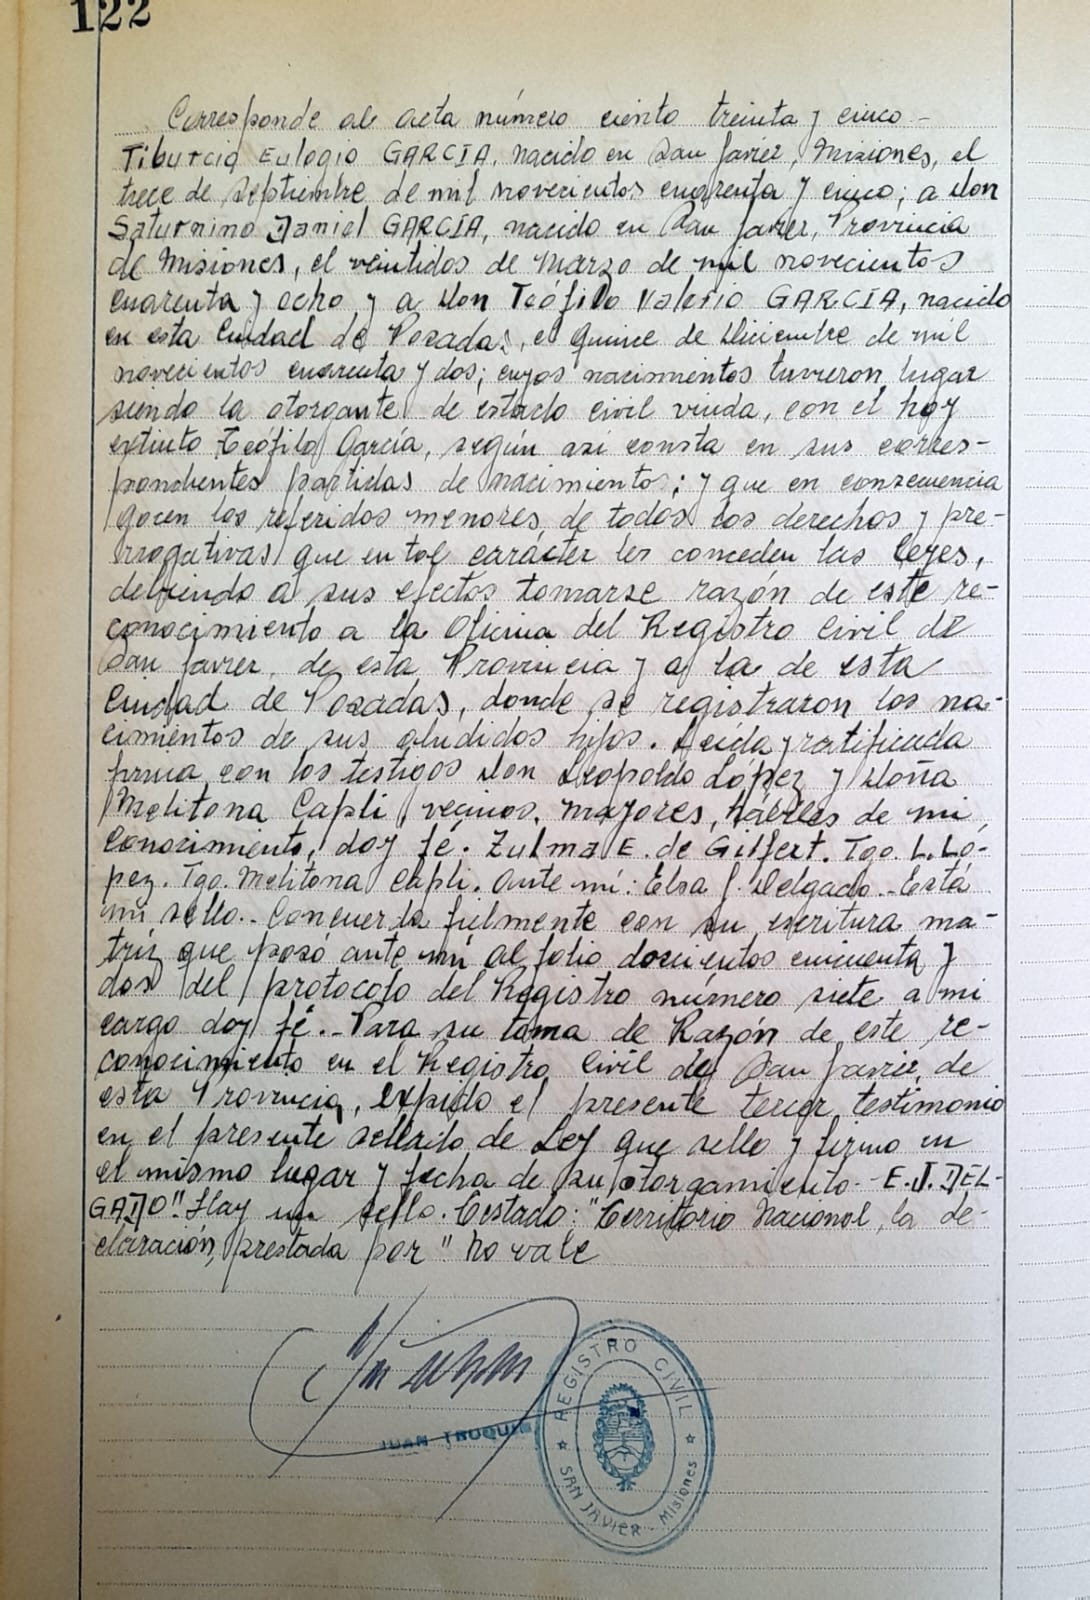 122
Corresponde al acta número ciento treinta y cinco -
Tiburcio Eulogio GARCIA, nacido en San Javier, Misiones, el
trece de Septiembre de mil novecientos cuarenta y cinco; a don
Saturnino Daniel GARCIA, nacido en San Javier, Provincia
de Misiones, el veintidos de Marzo de mil novecientos
cuarenta y ocho y a don Teófilo Valerio GARCIA, nacido
en esta Ciudad de Posadas, el quince de Diciembre de mil
novecientos cuarenta y dos; cuyos nacimientos tuvieron lugar
siendo la otorgante de estado civil viuda, con el hoy
extinto Teófilo García, según asi consta en sus corres-
pondientes partidas de nacimiento; y que en consecuencia
gocen los referidos menores de todos los derechos y pre-
rrogativas que en tal carácter les conceden las leyes,
debiendo a sus efectos tomarse razón de este re-
conocimiento a la Oficina del Registro Civil de
San Javier, de esta Provincia y a la de esta
Ciudad de Posadas, donde se registraron los na-
cimientos de sus aludidos hijos. Leida y ratificada
firma con los testigos don Leopoldo López y doña
Melitona Capli, vecinos, mayores, hábiles de mi
conocimiento, doy fé. Zulma E. de Gilfert. Tgo. L. Ló-
pez. Tgo. Melitona Capli. Ante mi: Elsa J. Delgado.- Está
mi sello.- Concuerda fielmente con su escritura ma-
triz que pasó ante mi al folio docientos cincuenta y
dos del protocolo del Registro número siete a mi
cargo doy fé.- Para su toma de Razón de este re-
conocimiento en el Registro Civil de San Javier, de
esta Provincia, expido el presente tercer testimonio
en el presente sellado de Ley que sello y firmo en
el mismo lugar y fecha de su otorgamiento.- E.J. DEL-
GADO" Hay un sello. Testado: "Territorio Nacional, la de-
claración, prestada por" no vale
JUAN
REGISTRO CIVIL
SAN JAVIER - Misiones